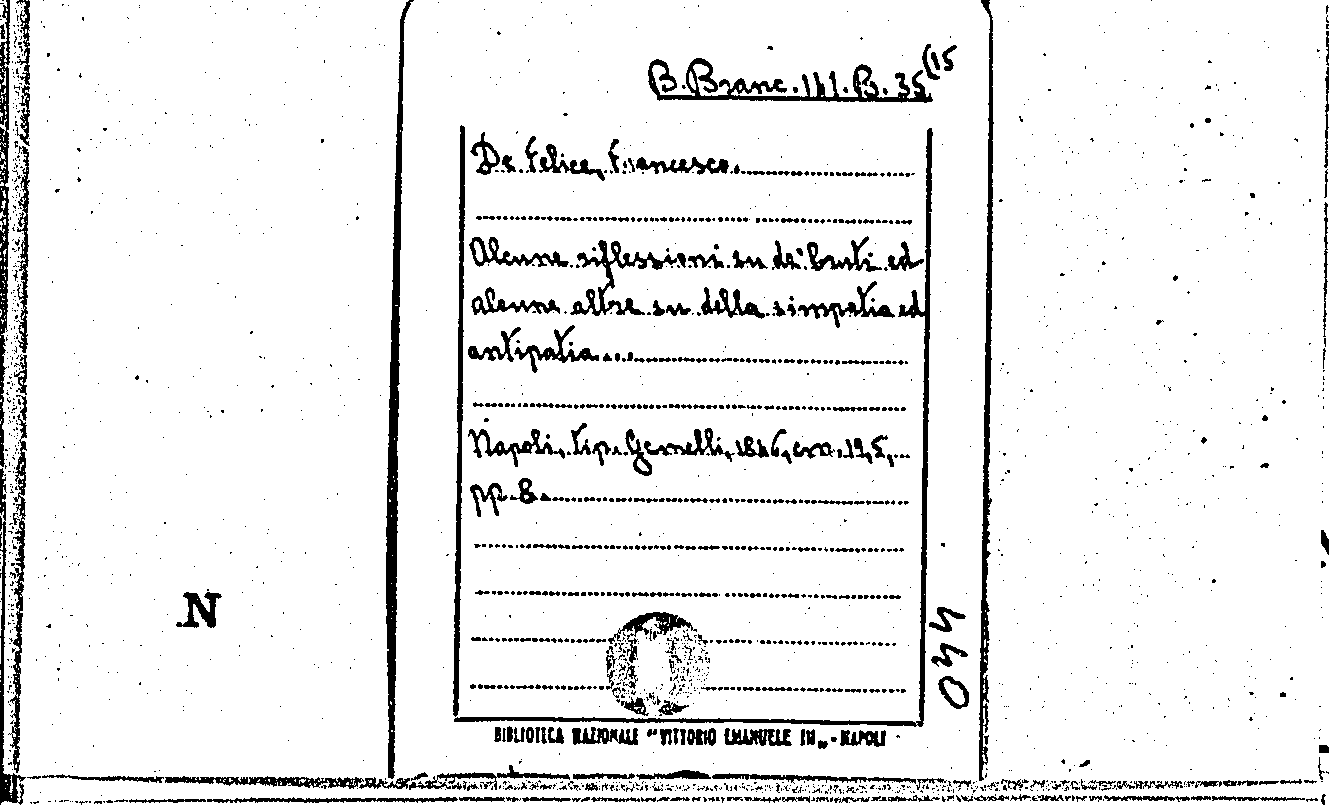 B. Branc. 141. B. 35 (15
De Felice, Francesco.
Alcune riflessioni su de' bruti ed
alcune altre su della simpatia ed
antipatia....
Napoli, tip. Gemelli, 1846, cm. 19,5,
pp. 8.
N
044
BIBLIOTECA NAZIONALE "VITTORIO EMANUELE III„ - NAPOLI